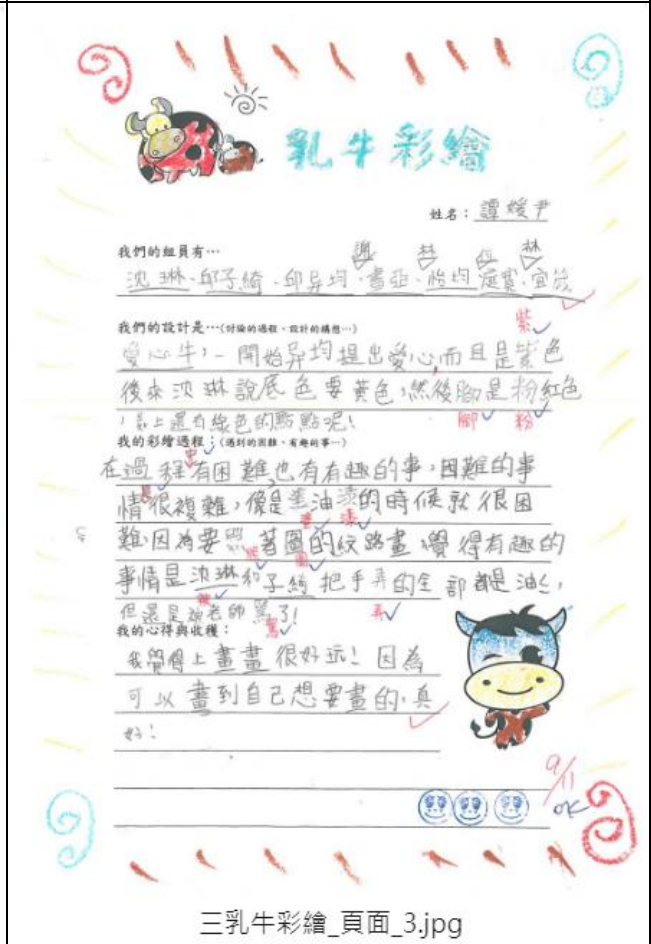 乳牛彩繪
姓名：譚媛尹
我們的組員有…
謝 林 伍 林
沈琳、邱子綺、邱异均、書亞、怡均、庭寬、宜筑
我們的設計是…(討論的過程、設計的構想…)
紫
愛心牛，一開始异均提出愛心而且是紫色
後來沈琳說底色要黃色，然後腳是粉紅色
，身上還有綠色的點點呢！
腳 粉
我的彩繪過程：(遇到的困難、有趣的事…)
中
在過程有困難也有有趣的事，困難的事
情很複雜，像是塗油漆的時候就很困
塗 漆
難，因為要照著圖的紋路畫，覺得有趣的
照 圖
事情是沈琳和子綺把手弄的全部都是油，
但還是被老師罵了！
被 罵 弄
我的心得與收穫：
我覺得上畫畫很好玩！因為
可以畫到自己想要畫的，真
好！
9/11
OK
三乳牛彩繪_頁面_3.jpg